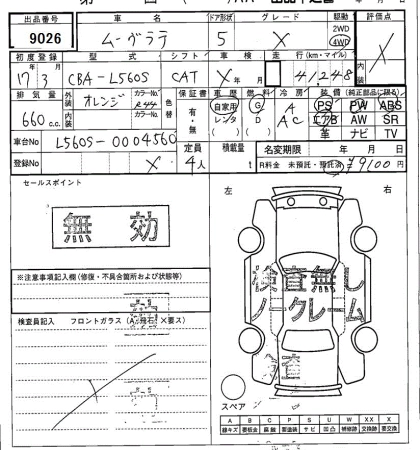 出品番号 車名 ドア形状 グレード 駆動 評価点
9026 ムーヴラテ 5 X 2WD 4WD X
初度登録 型式 シフト 車検 走行(km・マイル)
17年 3月 CBA-L560S CAT X年 月 41,248
排気量 外装 オレンジ カラーNo. R44 色替 保証書 車歴 燃料 冷房 装備(純正部品に限る)
660c.c. 内装 カラーNo. 有・無 自家用 G A PS PW ABS
レンタ D AC エアB AW SR
( ) ( ) 革 ナビ TV
車台No L560S-0004560 定員 積載量 名変期限 年 月 日
登録No X 4人 t R料金 未預託・預託済 ¥9100円
セールスポイント
無効
左 右
※注意事項記入欄(修復・不具合箇所および状態等)
検査無し
ノークレーム
検査員記入 フロントガラス(A、飛石、X要ス)
検査
スペア
A B C P S U W XX X
線キズ 要板金 腐蝕 要塗装 サビ 凹凸 補修跡 交換済 要交換